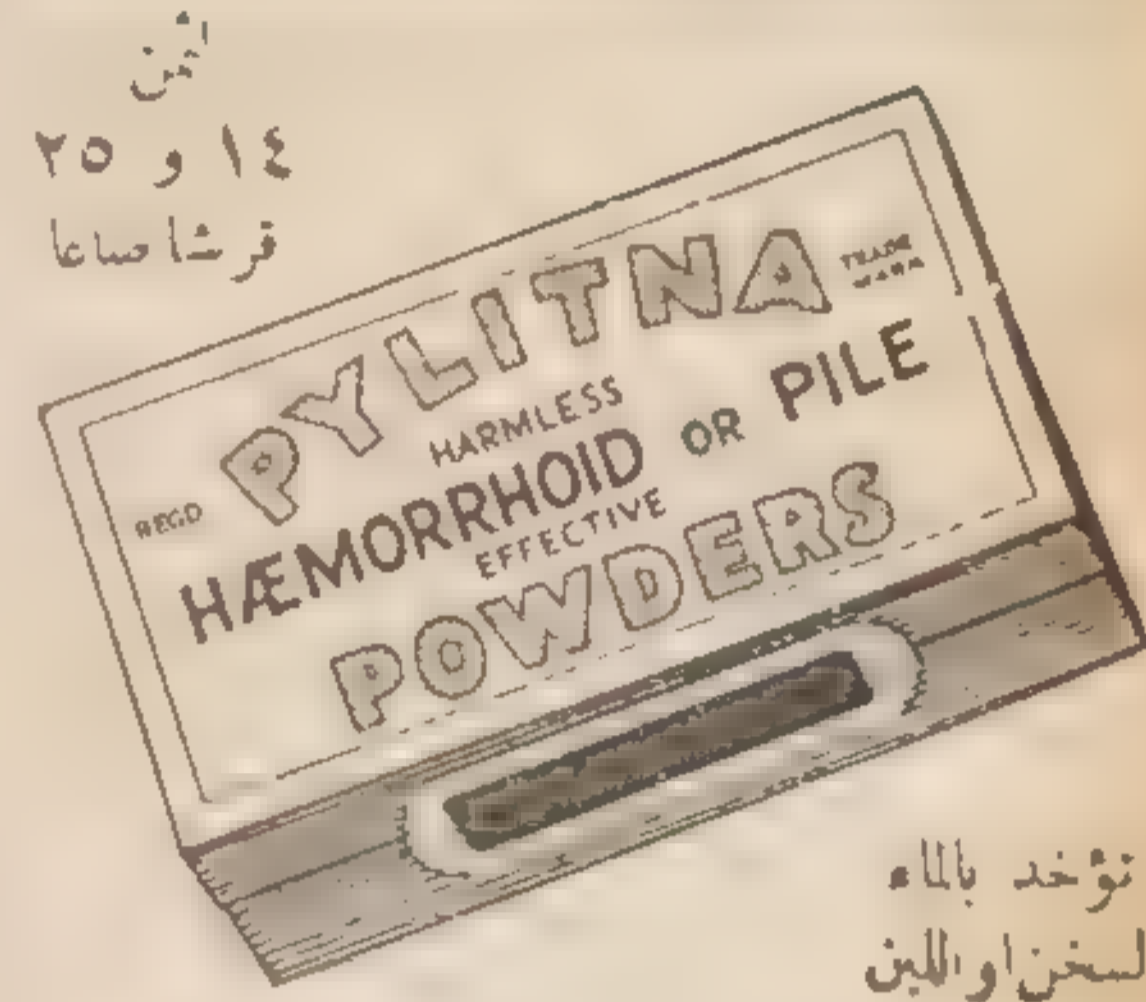 الثمن
١٤ و ٢٥
قرشا صاغا
PYLITNA
TRADE MARK
REGD
HARMLESS
HÆMORRHOID OR PILE
EFFECTIVE
POWDERS
تؤخذ بالماء
السخن او اللبن